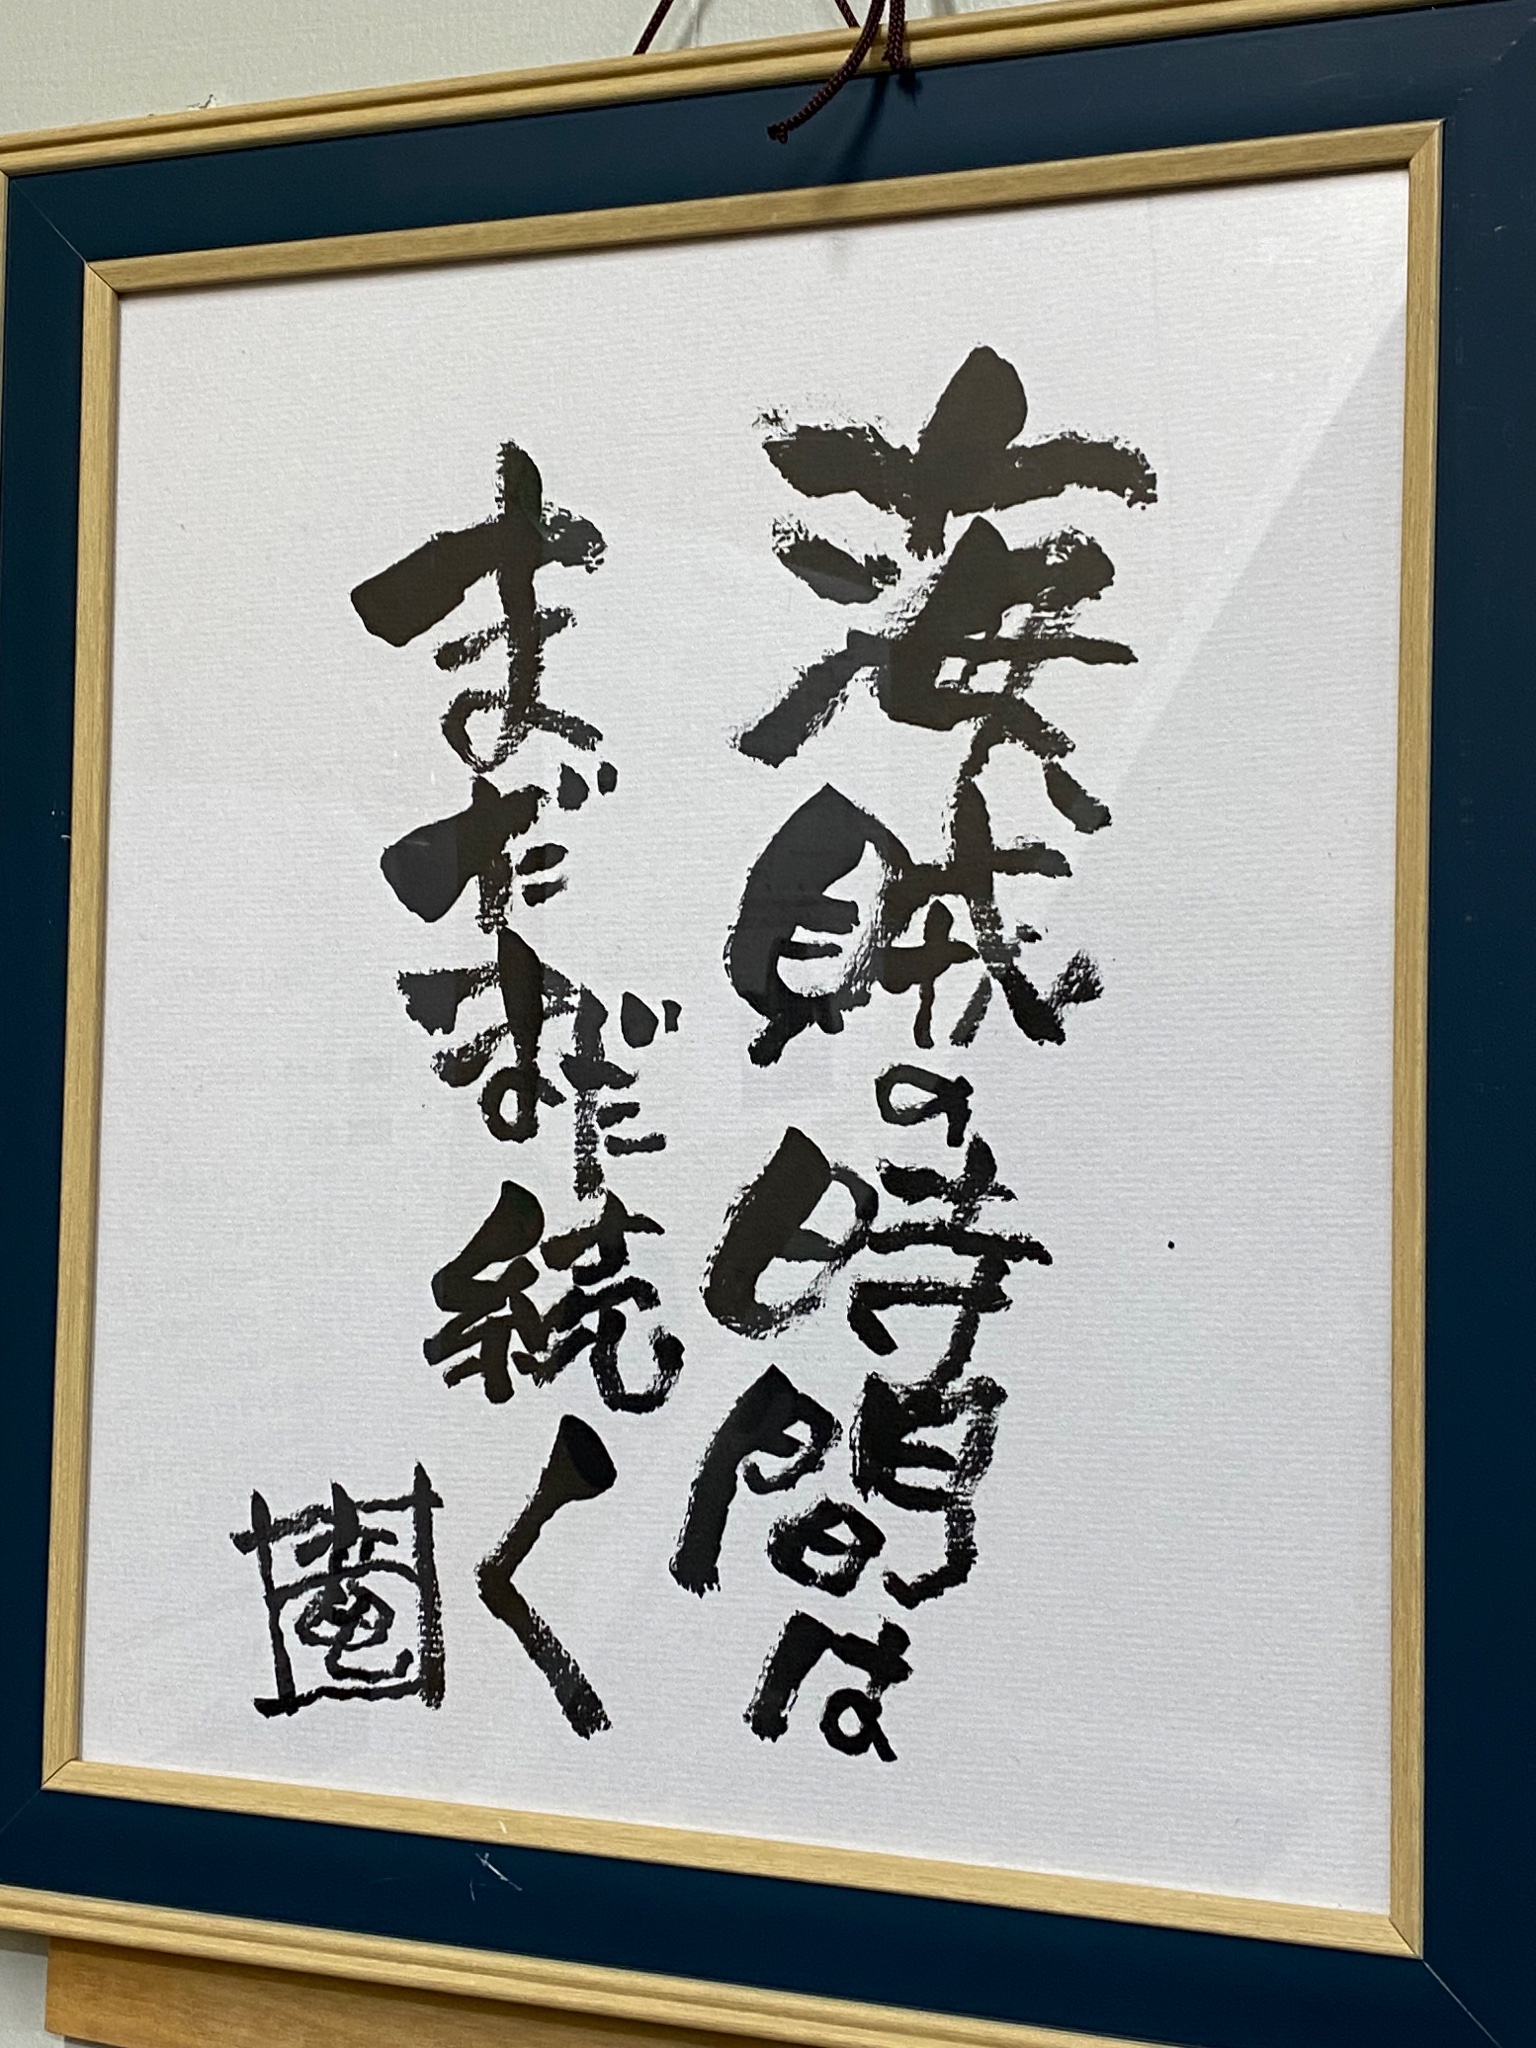 海賊の時間は
まだまだ続く